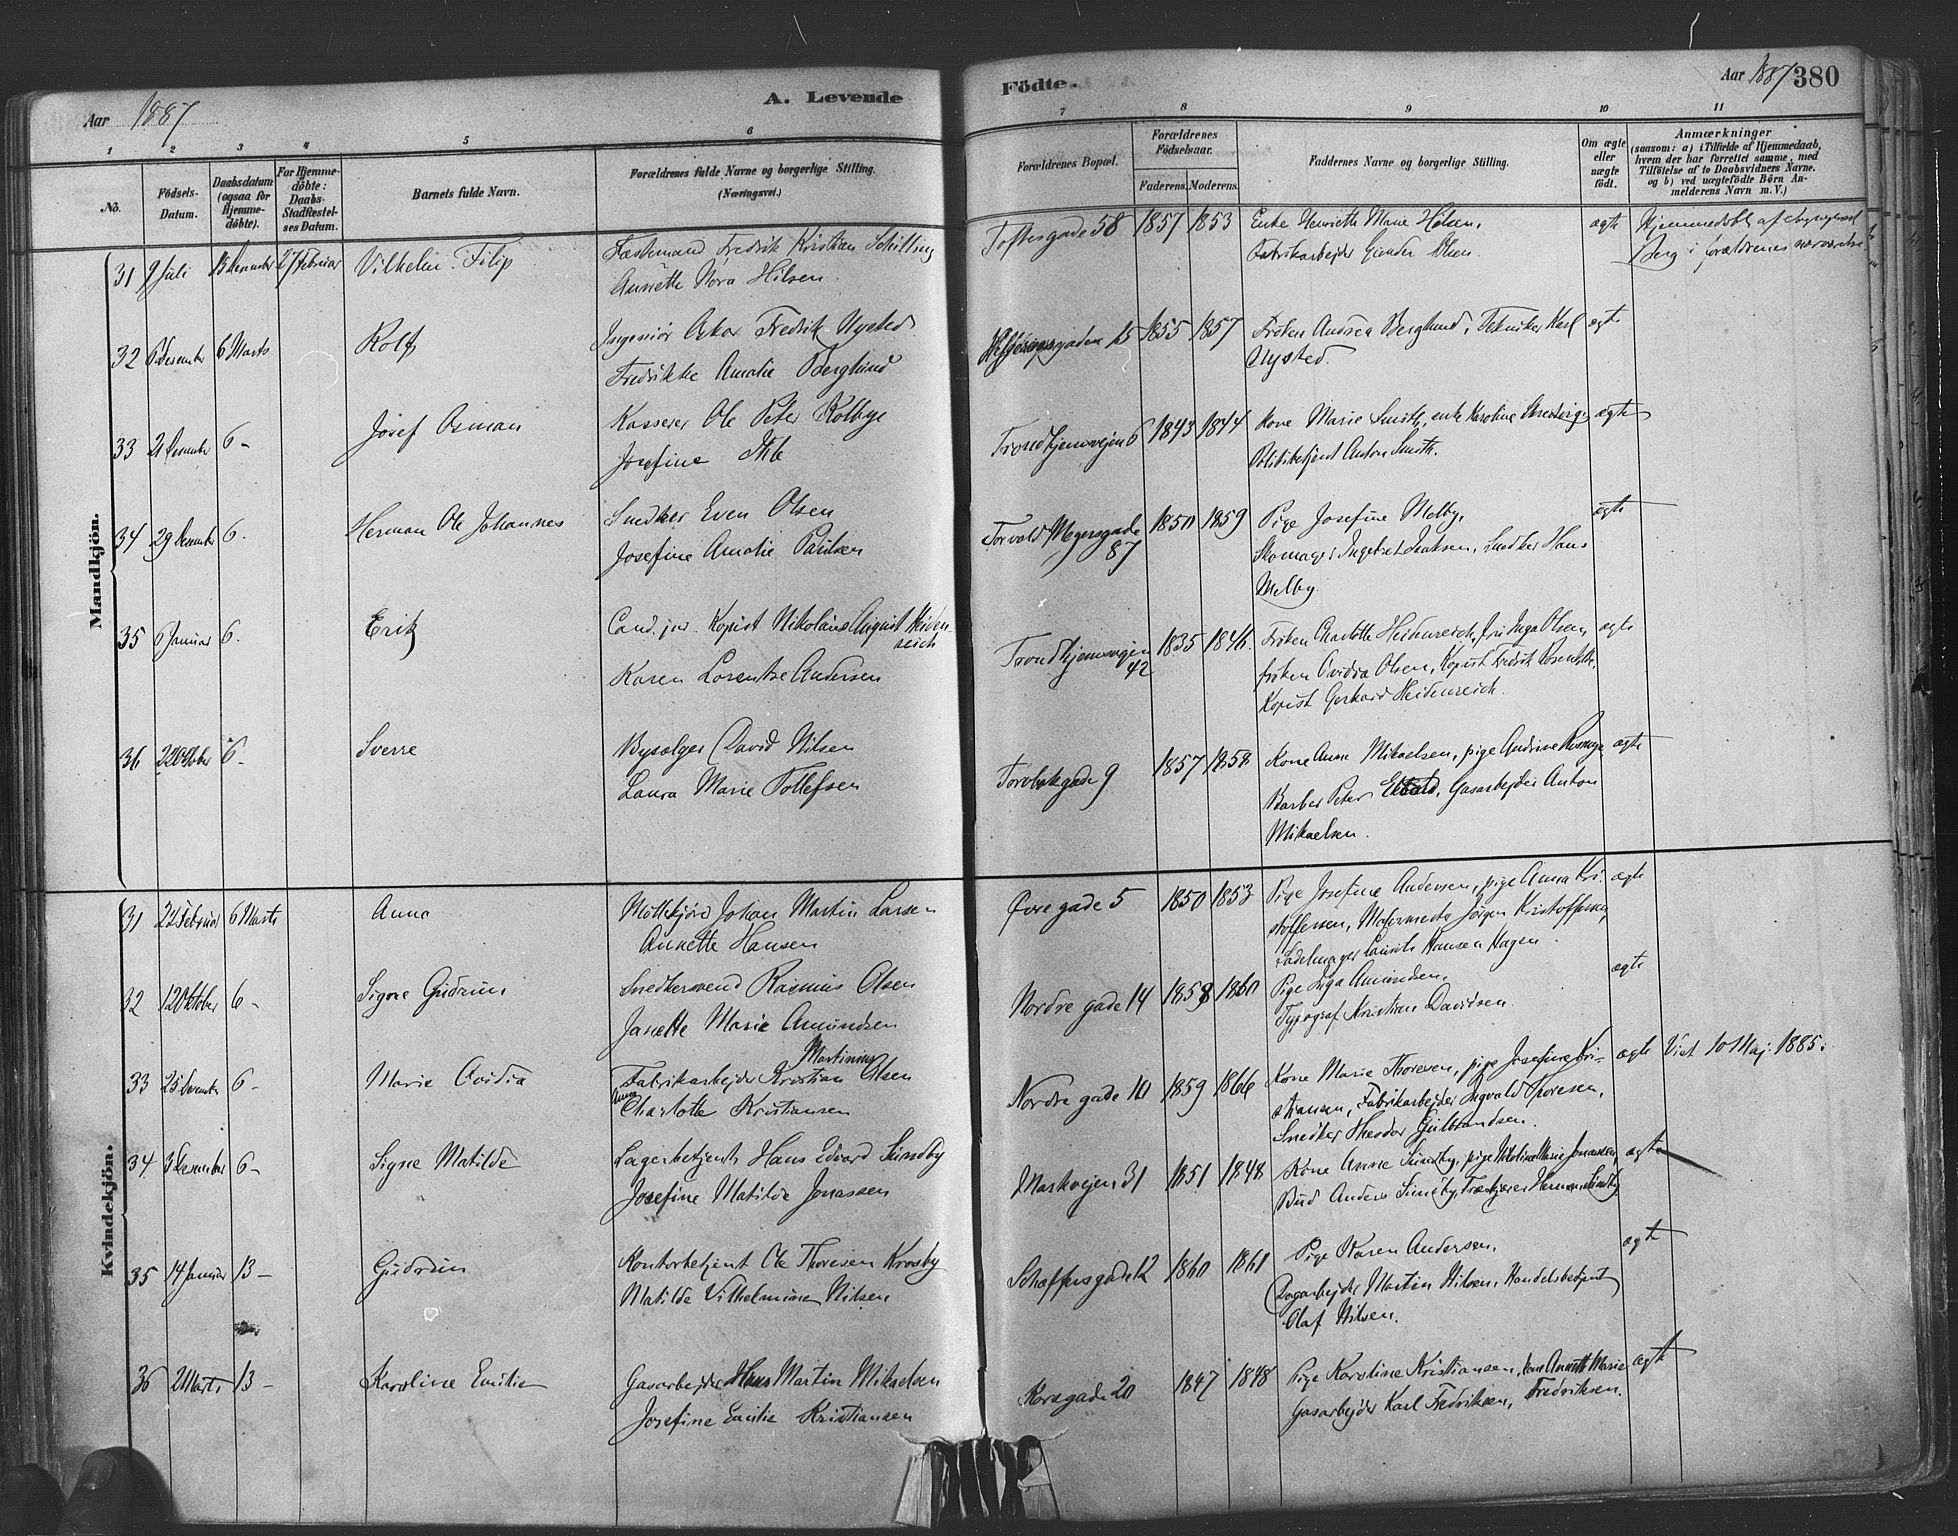 Aar 1887
A. Levende
Födte.
Aar 1887 380
1 2 3 4 5 6 7 8 9 10 11
No.
Födsels-
Datum.
Daabsdatum
(ogsaa for
Hjemme-
döbte).
For Hjemme-
döbte:
Daabs-
Stadfæstel-
ses Datum.
Barnets fulde Navn.
Forældrenes fulde Navne og borgerlige Stilling.
(Næringsvei.)
Forældrenes Bopæl.
Forældrenes
Födselsaar.
Faderens. Moderens.
Faddernes Navne og borgerlige Stilling.
Om ægte
eller
uægte
födt.
Anmærkninger
(saasom: a) i Tilfælde af Hjemmedaab,
hvem der har forrettet samme, med
Tilföielse af to Daabsvidners Navne.
og b) ved uægtefödte Börn An-
melderens Navn m. V.)
Mandkjön.
31 9 Juli 27 Februar Vilhelm Filip
Fredrik Kristian Schilling
Annette Nora Hilsen
Toftesgade 58 1857 1853
Enke Henriette Marie Hilsen,
Fabrikarbejder Gunder Olsen.
ægte
Hjemmedøbt af
Berg i forældrenes nærværelse
32 6 Desember 6 Marts Rolf
Ingeniør Oskar Fredrik Nysted
Fredrikke Amalie Berglund
15 1855 1857
Frøken Andrea Berglund, Tekniker Karl
Nysted.
ægte
33 21 Desember 6 - Josef Osman
Kasserer Ole Peter Kolbye
Josefine
Trondhjemsvejen 6 1843 1844
Kone Marie Smith, enke Karoline
Politibetjent Anton Smith.
ægte
34 29 Desember 6. Herman Ole Johannes
Snedker Even Olsen
Josefine Amalie Paulsen
Torvald Meyersgade
87
1850 1859
Pige Josefine Melby,
Skomager Ingebret Isaksen, Snedker Hans
Melby.
ægte
35 6 Januar 6. Erik
Cand. jur. Kopist Nikolaus August Heiden-
reich
Karen Lorentse Andersen
Trondhjemsvejen
42
1835 1846.
Frøken Charlotte Heidenreich, fru Inga Olsen,
frøken Ovidia Olsen, Kopist Fredrik
Kopist Gerhard Heidenreich.
ægte
36 22 Oktober 6 - Sverre
Bysælger David Nilsen
Laura Marie Tollefsen
9 1857 1858
Kone Anna Mikaelsen, pige Andrine
Barber Peter Gasarbejder Anton
Mikaelsen.
ægte
Kvindekjön.
31 22 Februar 6 Marts Anna
Johan Martin Larsen
Annette Hansen
Øvre gade 5 1850 1853
Pige Josefine Andersen, pige Anna Kri-
stoffersen, Malermester Jørgen Kristoffersen,
Sadelmager Laurits Hansen Hagen.
ægte
32 12 Oktober 6 - Signe Gudrun
Snedkersvend Rasmus Olsen
Janette Marie Amundsen
Nordre gade 14 1858 1860
Pige Inga Amundsen,
Typograf Kristian Davidsen.
ægte
33 25 6 - Marie Ovidia
Martinius
Fabrikarbejder Kristian Olsen
Anna
Charlotte Kristiansen
Nordre gade 10 1859 1866
Kone Marie Thoresen, pige Josefine Kri-
stiansen, Fabrikarbejder Ingvald Thoresen,
Snedker Theodor Gulbrandsen.
ægte Viet 10 Maj 1885.
34 3 Desember 6 - Signe Matilde
Lagerbetjent Hans Edvard Sundby
Josefine Matilde Jonassen
Markvejen 31 1851 1848
Kone Anne Sundby, pige Nikoline Marie Jonassen,
Bud Anders Sundby, Herman Sundby
ægte
35 14 Januar 13 - Gudrun
Kontorbetjent Ole Thoresen Krosby
Matilde Vilhelmine Nilsen
Schaffersgade 12 1860 1861
Pige Karen Andersen,
Dagarbejder Martin Nilsen, Handelsbetjent
Olaf Nilsen.
ægte
36 2 Marts 13 - Karoline Emilie
Gasarbejder Hans Martin Mikaelsen
Josefine Emilie Kristiansen
Korsgade 20 1847 1848
Pige Karoline Kristiansen, kone Annette Marie
Gasarbejder Karl Fredriksen, Fredriksen.
ægte